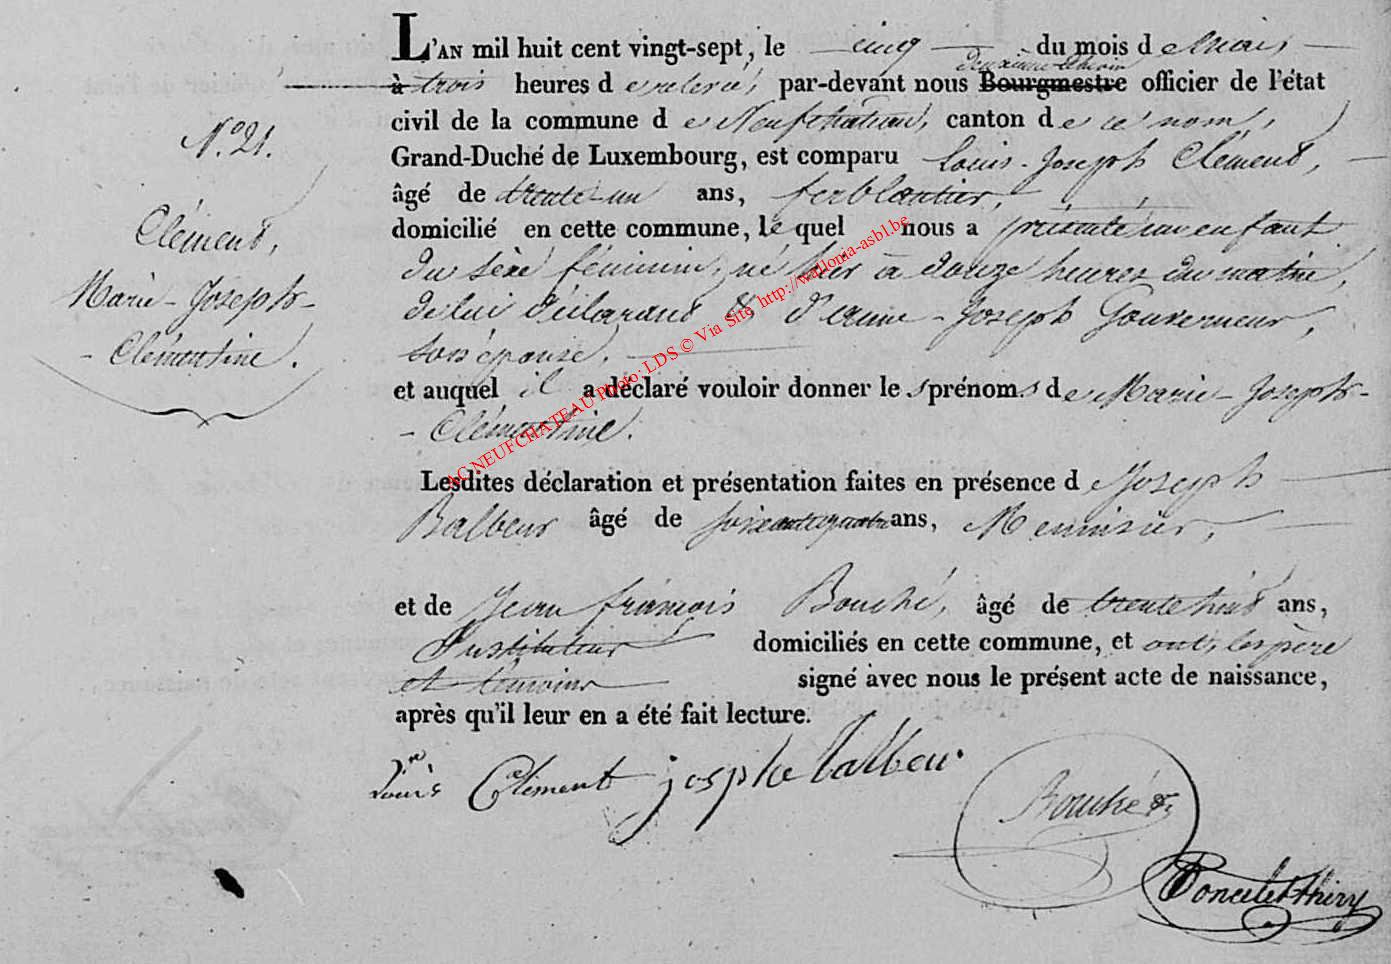 L'AN mil huit cent vingt-sept, le cinq du mois de Mai
à trois heures de relevé, par-devant nous Bourgmestre deuxième échevin officier de l'état
civil de la commune de Neufchateau, canton de ce nom,
Grand-Duché de Luxembourg, est comparu Louis-Joseph Clément,
âgé de trente-un ans, ferblantier,
domicilié en cette commune, le quel nous a présenté un enfant
du sexe féminin, né hier à douze heures du matin,
de lui déclarant & d'Anne-Joseph Gouverneur,
son épouse.
et auquel il a déclaré vouloir donner les prénoms de Marie-Joseph-
-Clémentine.
Lesdites déclaration et présentation faites en présence de Joseph
Balbeur âgé de soixante quatre ans, Menuisier,
et de Jean françois Bouché, âgé de trente huit ans,
Instituteur domiciliés en cette commune, et ont, les père
et témoins signé avec nous le présent acte de naissance,
après qu'il leur en a été fait lecture.
N.° 21.
Clément,
Marie-Joseph-
-Clémentine.
Louis Clément josphe balbeur
Bouché
Poncelet Thiry
AC NEUFCHATEAU Photo: LDS © Via Site http://wallonia-asbl.be